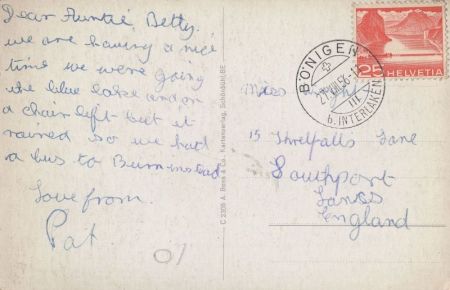 Dear Auntie Betty.
we are having a nice
time we were going
the blue lake and on
a chair left but it
rained so we had
a bus to Bern instead
Love from.
Pat
C 2328 A. Boss & Co. Kartenverlag, Schönbühl/BE
25 HELVETIA
BÖNIGEN
b. INTERLAKEN
Miss
15 Threlfalls Lane
Southport
Lancs
England